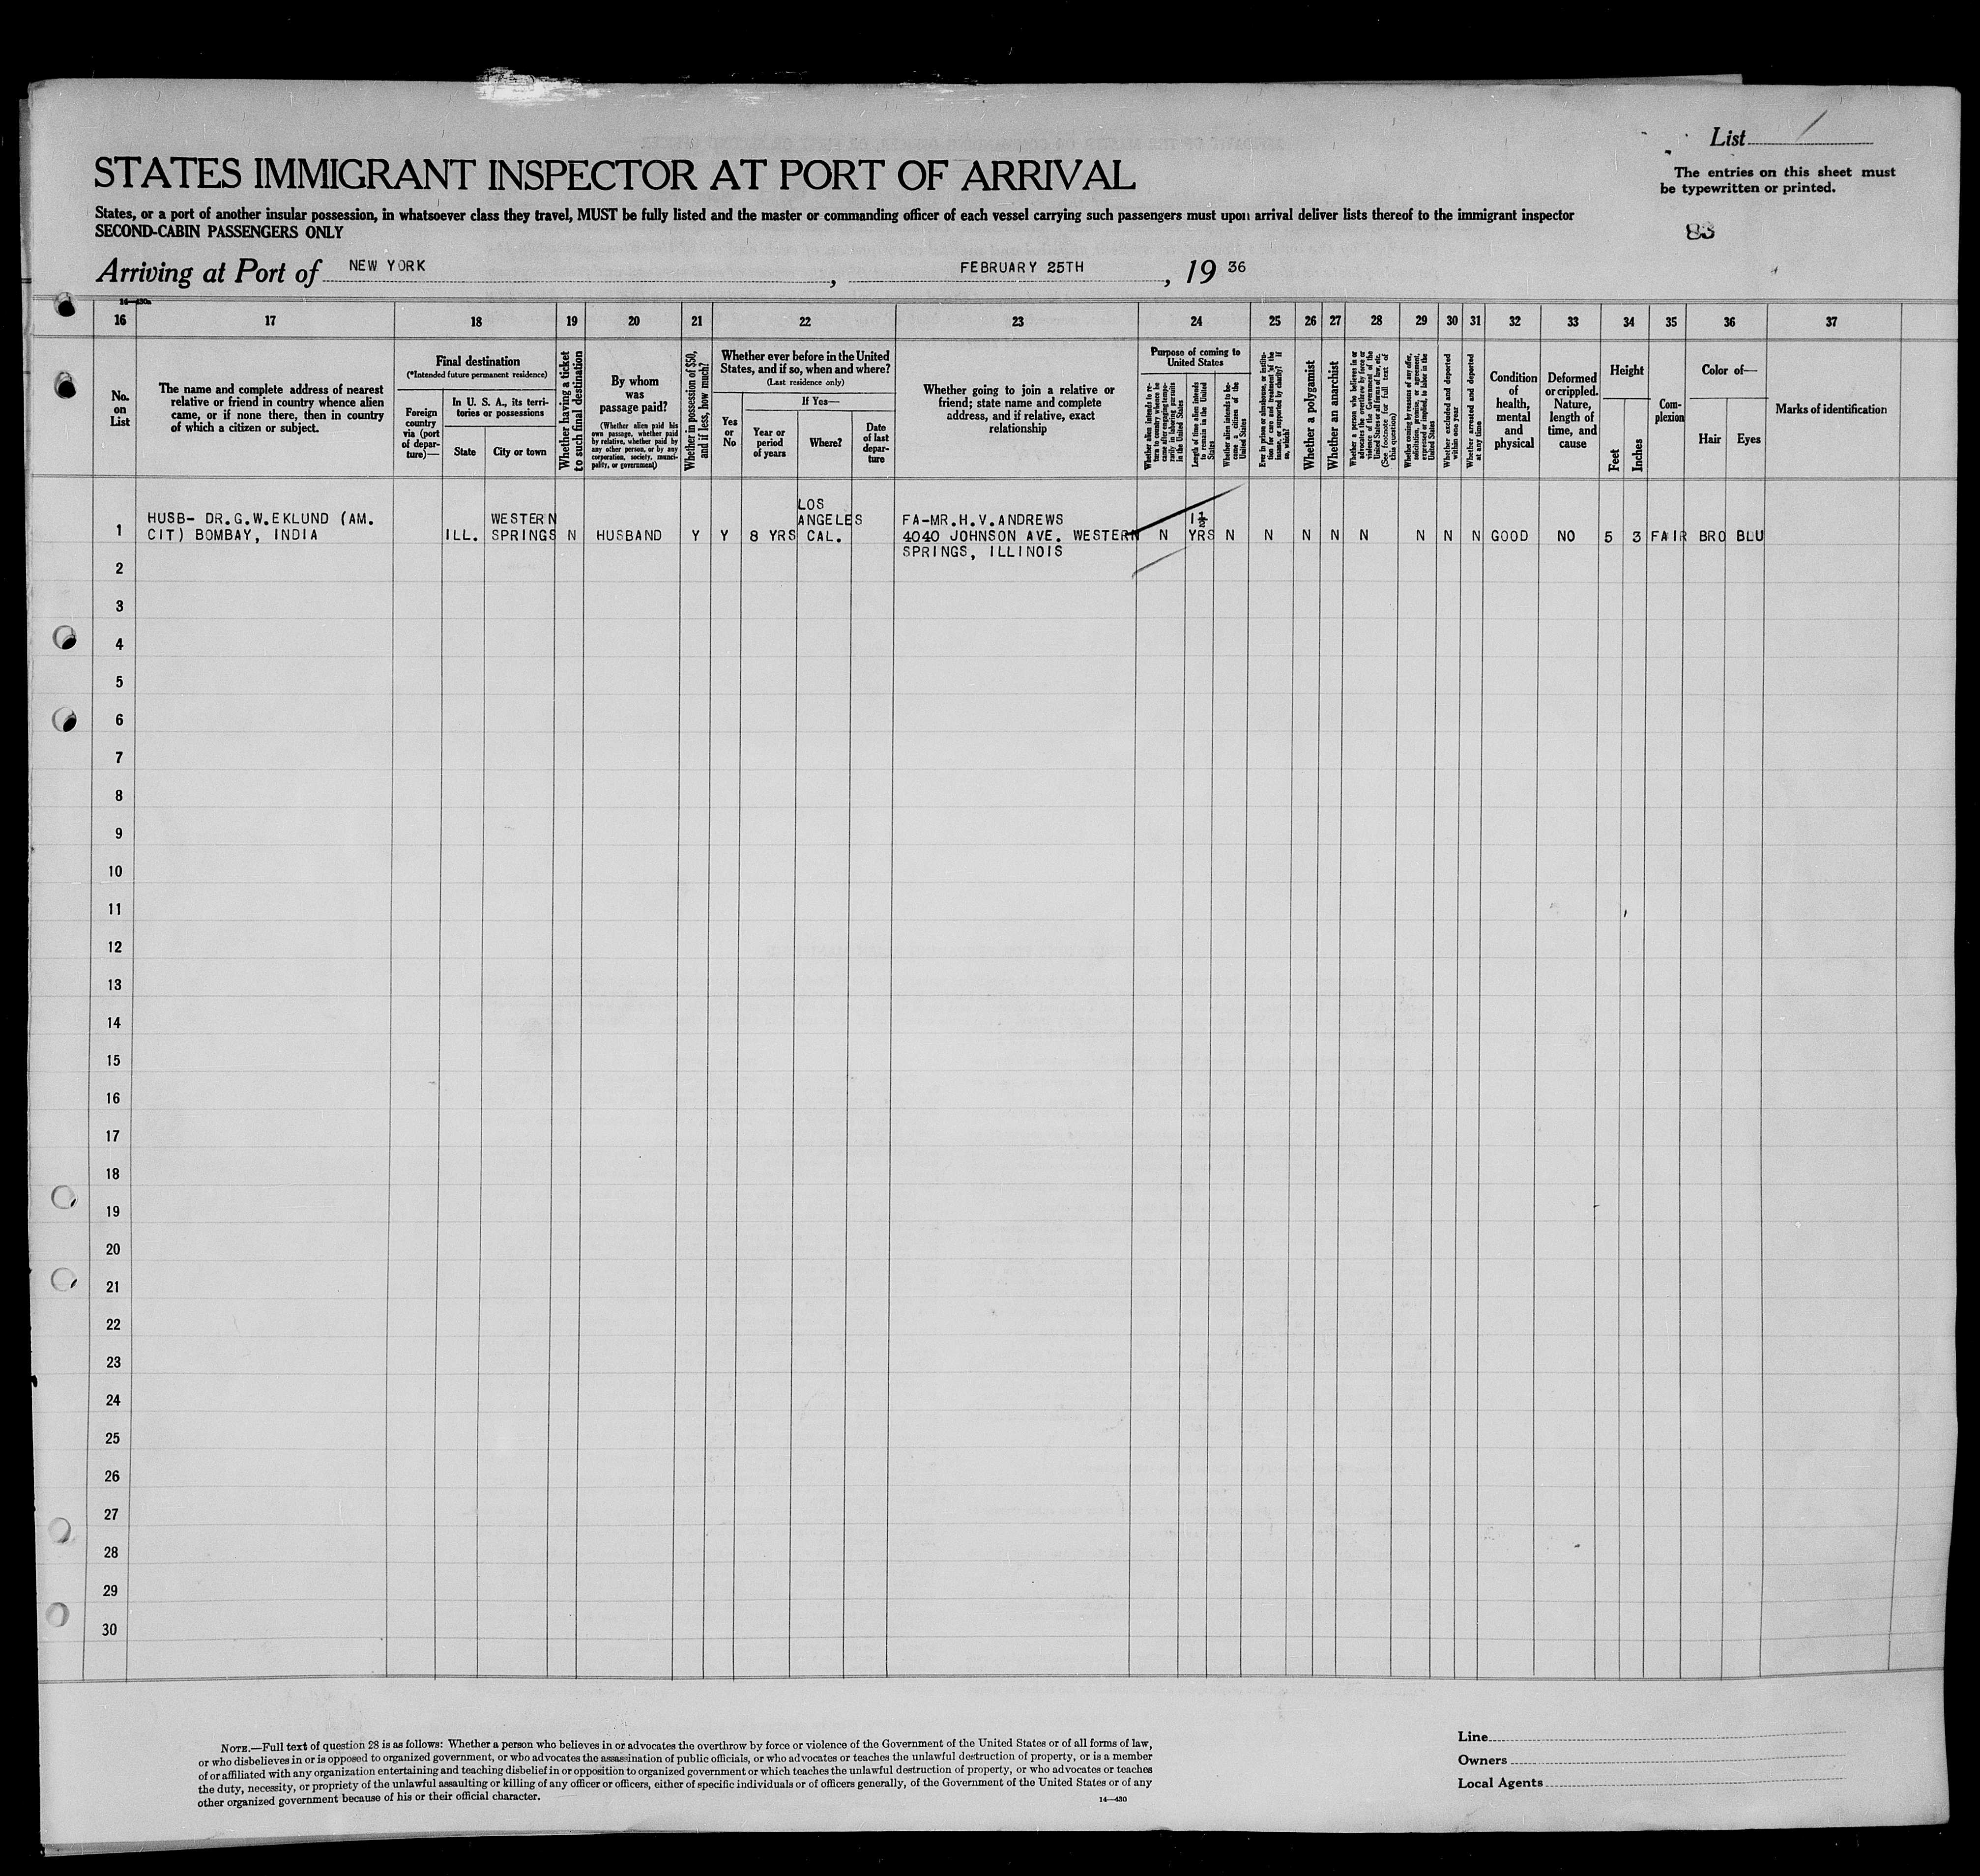 List 1
The entries on this sheet must
be typewritten or printed.
STATES IMMIGRANT INSPECTOR AT PORT OF ARRIVAL
States, or a port of another insular possession, in whatsoever class they travel, MUST be fully listed and the master or commanding officer of each vessel carrying such passengers must upon arrival deliver lists thereof to the immigrant inspector
SECOND-CABIN PASSENGERS ONLY
83
Arriving at Port of NEW YORK, FEBRUARY 25TH, 19 36
14—430a
16 17 18 19 20 21 22 23 24 25 26 27 28 29 30 31 32 33 34 35 36 37
No.
on
List
The name and complete address of nearest
relative or friend in country whence alien
came, or if none there, then in country
of which a citizen or subject.
Final destination
(*Intended future permanent residence)
Foreign
country
via (port
of depar-
ture)—
In U. S. A., its terri-
tories or possessions
State
City or town
Whether having a ticket
to such final destination
By whom
was
passage paid?
(Whether alien paid his
own passage, whether paid
by relative, whether paid by
any other person, or by any
corporation, society, munici-
pality, or government)
Whether in possession of $50,
and if less, how much?
Whether ever before in the United
States, and if so, when and where?
(Last residence only)
Yes
or
No
If Yes—
Year or
period
of years
Where?
Date
of last
depar-
ture
Whether going to join a relative or
friend; state name and complete
address, and if relative, exact
relationship
Purpose of coming to
United States
Whether alien intends to re-
turn to country whence he
came after engaging tempo-
rarily in laboring pursuits
in the United States
Length of time alien intends
to remain in the United
States
Whether alien intends to be-
come a citizen of the
United States
Ever in prison or almshouse, or institu-
tion for care and treatment of the
insane, or supported by charity? If
so, which?
Whether a polygamist
Whether an anarchist
Whether a person who believes in or
advocates the overthrow by force or
violence of the Government of the
United States or all forms of law, etc.
(See footnote for full text of
this question)
Whether coming by reasons of any offer,
solicitation, promise, or agreement,
expressed or implied, to labor in the
United States
Whether excluded and deported
within one year
Whether arrested and deported
at any time
Condition
of
health,
mental
and
physical
Deformed
or crippled.
Nature,
length of
time, and
cause
Height
Feet
Inches
Com-
plexion
Color of—
Hair
Eyes
Marks of identification
LOS
HUSB- DR.G.W.EKLUND (AM. WESTERN ANGELES FA-MR.H.V.ANDREWS 1½
1 CIT) BOMBAY, INDIA ILL. SPRINGS N HUSBAND Y Y 8 YRS CAL. 4040 JOHNSON AVE. WESTERN N YRS N N N N N N N N GOOD NO 5 3 FAIR BRO BLU
SPRINGS, ILLINOIS
2
3
4
5
6
7
8
9
10
11
12
13
14
15
16
17
18
19
20
21
22
23
24
25
26
27
28
29
30
NOTE.—Full text of question 28 is as follows: Whether a person who believes in or advocates the overthrow by force or violence of the Government of the United States or of all forms of law,
or who disbelieves in or is opposed to organized government, or who advocates the assassination of public officials, or who advocates or teaches the unlawful destruction of property, or is a member
of or affiliated with any organization entertaining and teaching disbelief in or opposition to organized government or which teaches the unlawful destruction of property, or who advocates or teaches
the duty, necessity, or propriety of the unlawful assaulting or killing of any officer or officers, either of specific individuals or of officers generally, of the Government of the United States or of any
other organized government because of his or their official character.
14—430
Line
Owners
Local Agents